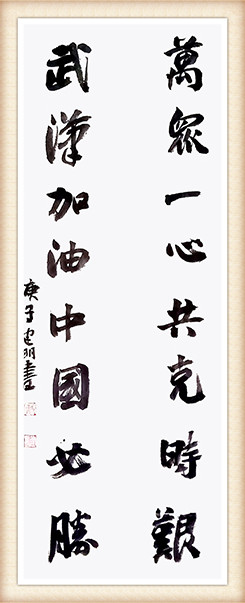 萬眾一心共克時艱
武漢加油中國必勝
庚子建明書